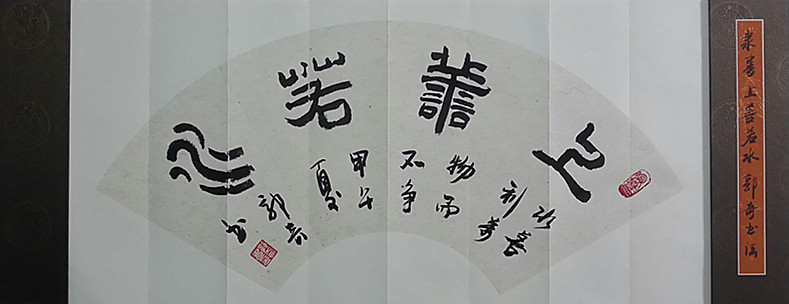 上善若水
水善
利萬
物而
不争
甲午
夏
郭奇
书
善上善若水郭奇书法